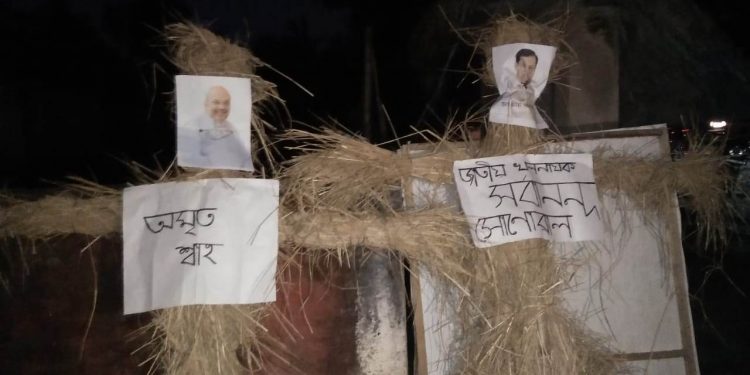 অমৃত
শ্বাহ
জাতীয় খলনায়ক
সৰ্বানন্দ
সোনোৱাল